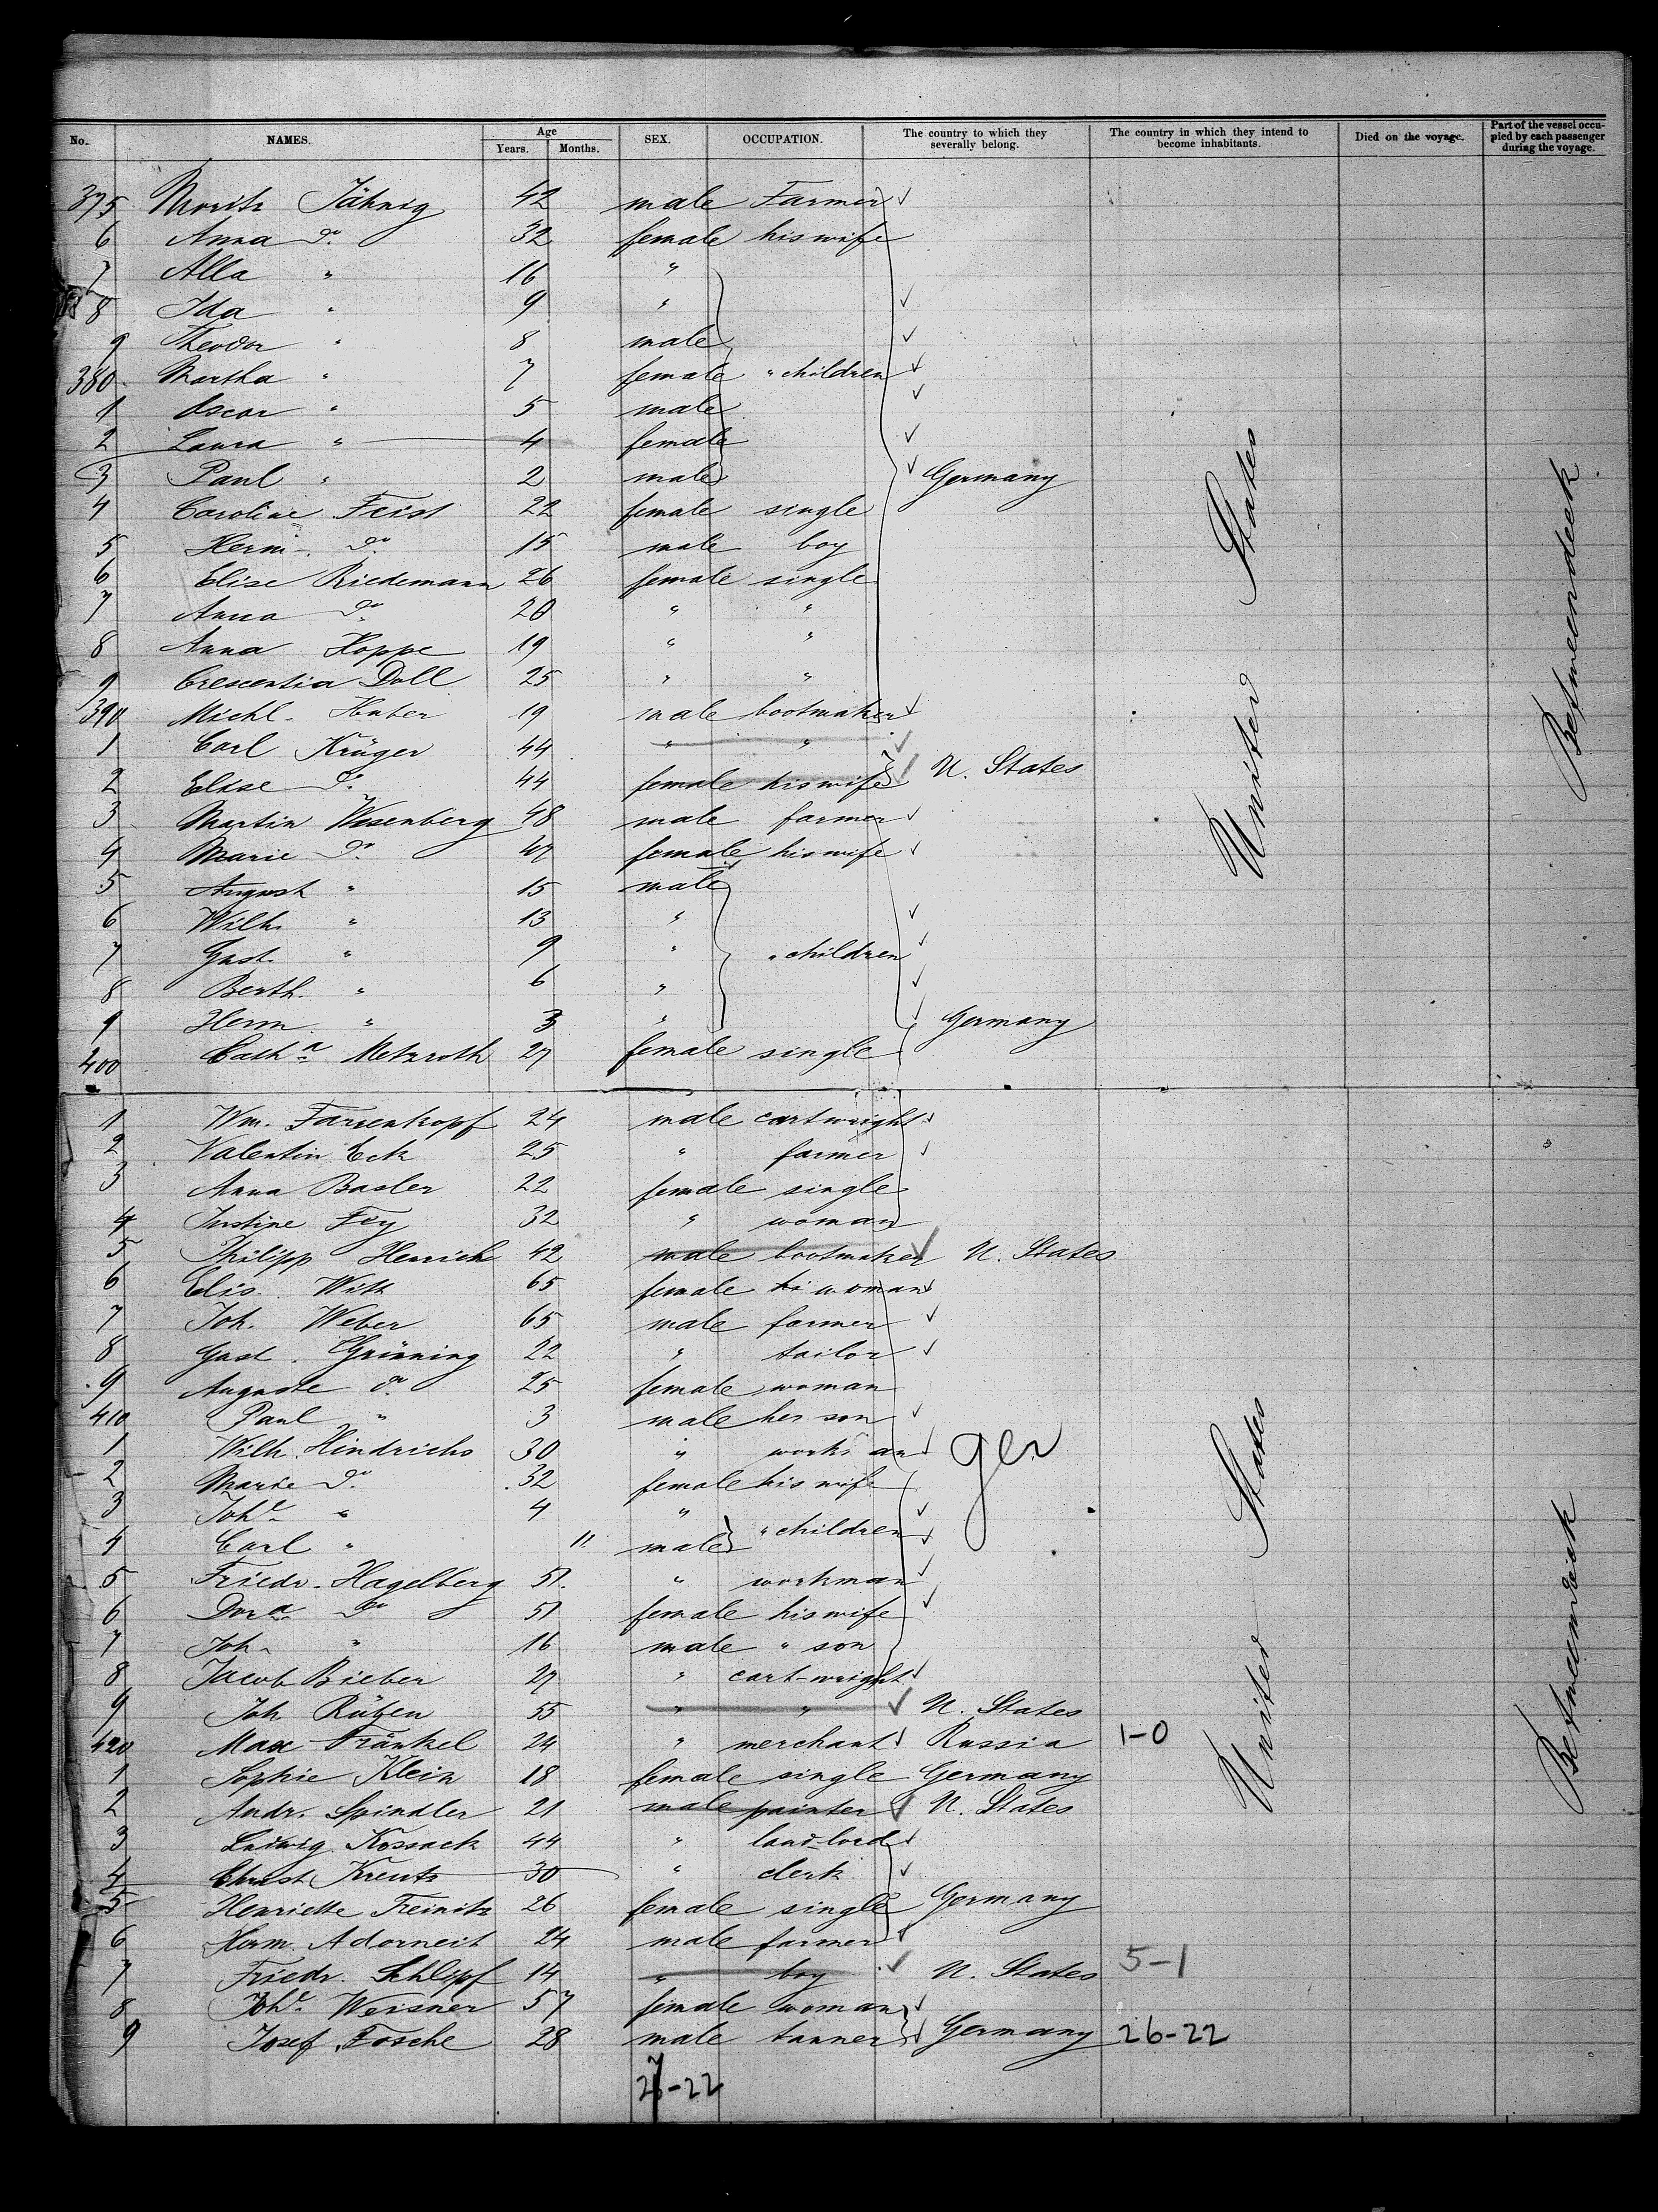 No. NAMES. Age Years. Months. SEX. OCCUPATION. The country to which they severally belong. The country in which they intend to become inhabitants. Died on the voyage. Part of the vessel occupied by each passenger during the voyage.
375 Moritz Jähnig 42 male Farmer
6 Anna do 32 female his wife
7 Alla " 16 "
8 Ida " 9 "
9 Theodor " 8 male
380 Martha " 7 female " children
1 Oscar " 5 male
2 Laura " 4 female
3 Paul " 2 male Germany
4 Caroline Feist 22 female single
5 Herm. do 15 male boy
6 Elise Riedemann 26 female single
7 Anna do 20 " "
8 Anna Hoppe 19 " "
9 Crescentia Doll 25 " "
390 Michl. Huber 19 male bootmaker
1 Carl Krüger 44 " "
2 Elise do 44 female his wife U. States
3 Martin Wesenberg 48 male farmer
4 Marie do 47 female his wife
5 August " 15 male
6 Wilh. " 13 "
7 Gust. " 9 " " children
8 Berth. " 6 "
9 Herm. " 3 " Germany
400 Cath.a Metzroth 27 female single
United States
Betweendeck
1 Wm. Farrenkopf 24 male cartwright
2 Valentin Eck 25 " farmer
3 Anna Basler 22 female single
4 Justine Fey 32 " woman
5 Philipp Henrich 42 male bootmaker U. States
6 Elis. Witt 65 female woman
7 Joh. Weber 65 male farmer
8 Gust. Grünning 22 " tailor
9 Auguste do 25 female woman
410 Paul " 3 male her son
1 Wilh. Hindrichs 30 " ger
2 Marie do 32 female his wife
3 Johe " 4 "
4 Carl " 11 male " children
5 Friedr. Hagelberg 51. " workman
6 Dora do 51 female his wife
7 Joh. " 16 male " son
8 Jacob Bieber 27 " cart-wright
9 Joh. 55 " " U. States
420 Max Fränkel 24 " merchant Russia 1-0
1 Sophie Klein 18 female single Germany
2 Andr. Spindler 21 male painter U. States
3 Ludwig Kossack 44 " landlord
4 Christ. Kreutz 30 " clerk
5 Henriette Treinitz 26 female single Germany
6 Herm. Adorneit 24 male farmer
7 Friedr. Schlipf 14 " boy U. States 5-1
8 Johe Weisner 57 female woman
9 Josef Fosche 28 male tanner Germany 26-22
United States
Betweendeck
-22